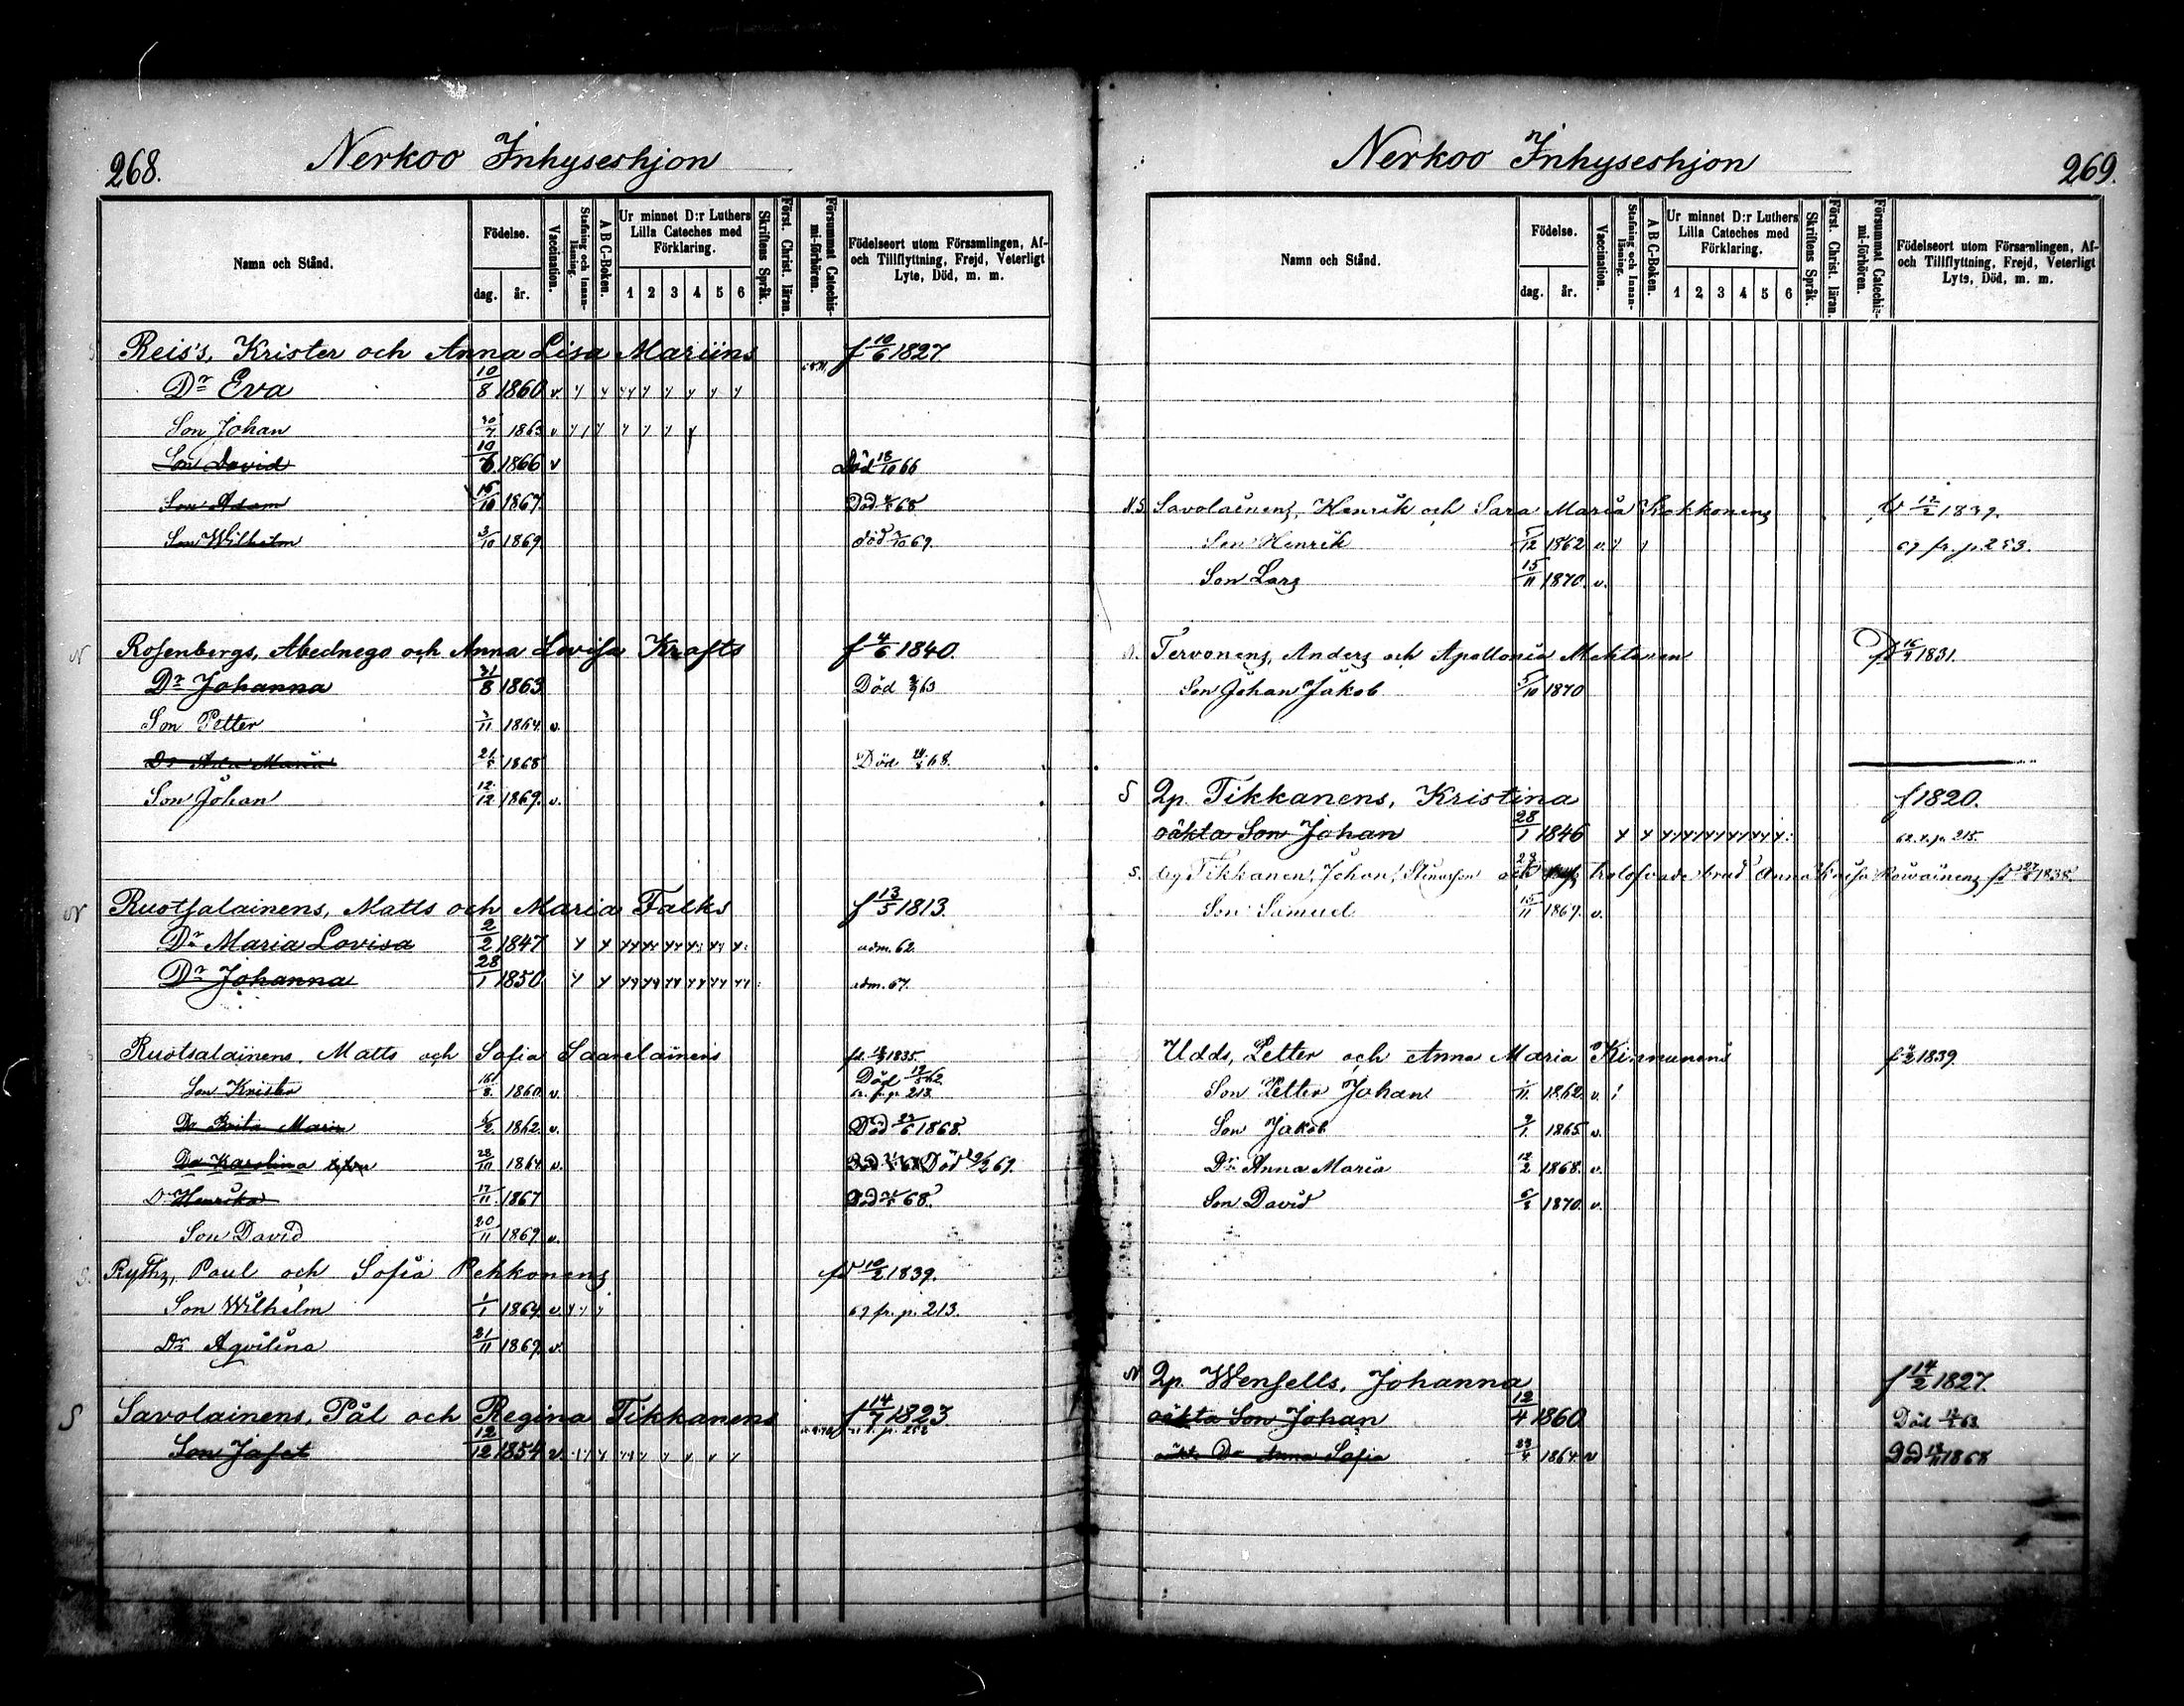 268.
Nerkoo Inhyseshjon
Namn och Stånd.
Födelse.
dag. år.
Vaccination.
Stafning och Innanläsning.
A B C-Boken.
Ur minnet D:r Luthers Lilla Cateches med Förklaring.
1 2 3 4 5 6
Skriftens Språk.
Först. Christ. läran.
Försummat Catechismi-förhören.
Födelseort utom Församlingen, Af-
och Tillflyttning, Frejd, Veterligt
Lyte, Död, m. m.
Reis's, Krister och Anna Lisa Mariins f 10/6 1827
Dr Eva 10/8 1860 v.
Son Johan 1863 v
Son David 10/6 1866 v Död 18/10 66
Son Adam 1867. Död 68
Son Wilhelm 3/10 1869 död 69.
N Rosenbergs, Abednego och Anna Lovisa Krafts f 4/6 1840.
Dr Johanna 31/8 1863 Död 63
Son Petter 1864 v.
Maria 1868 Död 68.
Son Johan 12/12 1869. v.
N Ruotsalainens, Matts och Maria Falks f 13/5 1813.
Dr Maria Lovisa 2/2 1847 adm. 62.
Dr Johanna 28/1 1850 adm. 67.
Ruotsalainens. Matts och Sofia Saarelainens 1835.
Son Krister 16/8 1860. v. Död 62. p. 213.
Dr Brita Maria 1862. v. Död 1868.
Dr Karolina 28/10 1864 v. Död 69.
Dr Henrika 17/11 1867 Död 68.
Son David 20/11 1869. v.
Ryths, Paul och Sofia Pekkonens fd 10/2 1839.
Son Wilhelm 1/1 1864 v. 69 fr. p. 213.
Dr Aqvilina 21/11 1869. v.
S Savolainens, Pål och Regina Tikkanens f 14/7 1823
Son Jafet 12/12 1854 v.
Nerkoo Inhyseshjon
269.
Namn och Stånd.
Födelse.
dag. år.
Vaccination.
Stafning och Innanläsning.
A B C-Boken.
Ur minnet D:r Luthers Lilla Cateches med Förklaring.
1 2 3 4 5 6
Skriftens Språk.
Först. Christ. läran.
Försummat Catechismi-förhören.
Födelseort utom Församlingen, Af-
och Tillflyttning, Frejd, Veterligt
Lyte, Död, m. m.
N.S. Savolainens, Henrik och Sara Maria Kokkonens 12/2 1839.
Son Henrik 1862 v. 69 fr. p. 253.
Son Lars 15/11 1870. v.
Tervonens, Anders och Apollonia 1831.
Son Johan Jakob 5/10 1870
S Qp. Tikkanens, Kristina f 1820.
oäkta Son Johan 28/1 1846 p. 215.
S. Tikkanen, Johan, och brud Anna 1838.
Son Samuel 15/11 1869. v.
Udds, Petter och Anna Maria Kinnunens 1839
Son Petter Johan 1862 v.
Son Jakob 1865 v.
Dr Anna Maria 12/2 1868. v.
Son David 1870. v.
N Qp. Wensells, Johanna f 14/2 1827.
oäkta Son Johan 12/4 1860 Död 63.
Dr Anna Sofia 1864 v Död 1868